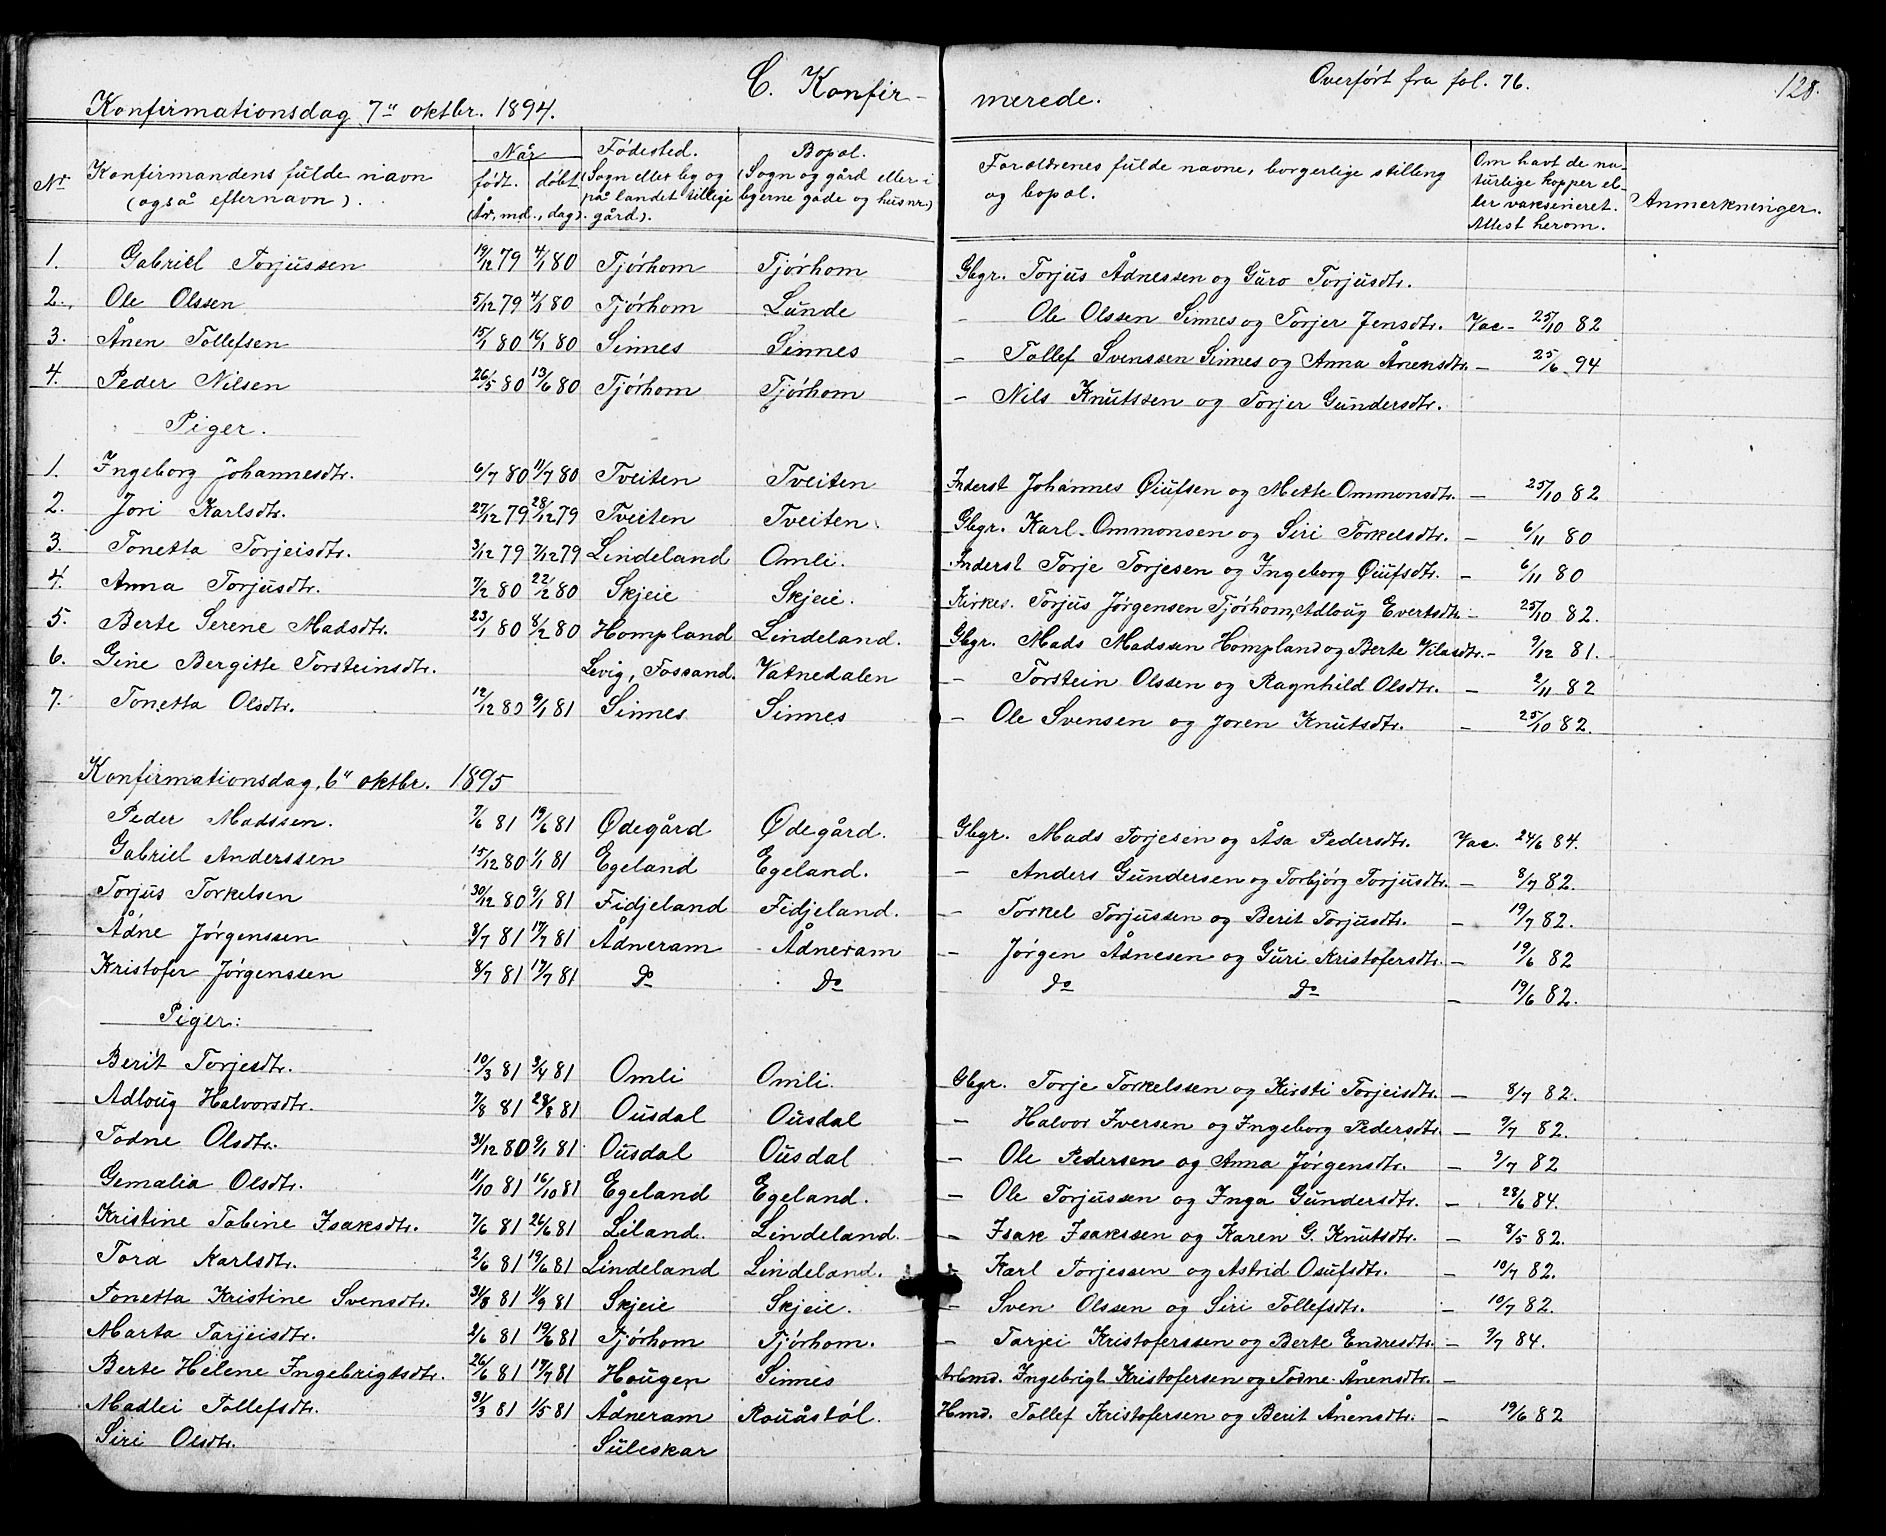 C. Konfir- merede. Overført fra fol. 76. 128.
Konfirmationsdag 7" oktbr. 1894.
Nr. Konfirmandens fulde navn (også efternavn). Når født. døbt (År, md., dag). Fødested. (Sogn eller by og på landet tillige gård). Bopæl. (Sogn og gård eller i byerne gade og husnr.) Forældrenes fulde navne, borgerlige stilling og bopæl. Om havt de naturlige kopper eller vaksineret. Attest herom. Anmerkninger.
1. Gabriel Torjussen 19/12 79 4/1 80 Tjórhom Tjórhom Gbgr. Torjus Ådnessen og Guro Torjusdtr.
2. Ole Olssen 5/12 79 4/1 80 Tjórhom Lunde - Ole Olssen Sinnes og Torjer Jensdtr. Vac- 25/10 82
3. Ånen Tollefsen 15/1 80 16/1 80 Sinnes Sinnes - Tollef Svenssen Sinnes og Anna Ånensdtr. - 25/6 94
4. Peder Nilsen 26/5 80 13/6 80 Tjórhom Tjórhom - Nils Knutssen og Torjer Gundersdtr.
Piger.
1. Ingeborg Johannesdtr. 6/7 80 11/7 80 Tveiten Tveiten Inderst Johannes Øiufsen og Mette Ommonsdtr. - 25/10 82
2. Jori Karlsdtr. 27/12 79 28/12 79 Tveiten Tveiten Gbgr. Karl Ommonsen og Siri Torkelsdtr. - 6/11 80
3. Tonetta Torjeisdtr. 3/12 79 7/12 79 Lindeland Omli. Inderst Torje Torjesen og Ingeborg Øiufsdtr. - 6/11 80
4. Anna Torjusdtr. 7/2 80 22/2 80 Skjeie Skjeie. Kirkes. Torjus Jørgensen Tjórhom, Adloug Evertsdtr. - 25/10 82.
5. Berte Serene Madsdtr. 23/1 80 8/2 80 Hompland Lindeland. Gbgr. Mads Madssen Hompland og Berte Vilasdtr. - 9/12 81.
6. Gine Bergitte Torsteinsdtr. Levig, Fossand. Vatnedalen - Torstein Olssen og Ragnhild Olsdtr. - 2/11 82
7. Tonetta Olsdtr. 12/12 80 9/1 81 Sinnes Sinnes - Ole Svensen og Joren Knutsdtr. - 25/10 82.
Konfirmationsdag, 6" oktbr. 1895
Peder Madssen. 7/6 81 19/6 81 Ødegård Ødegård. Gbgr. Mads Torjesen og Åsa Pedersdtr. Vac. 24/6 84.
Gabriel Anderssen 15/12 80 1/1 81 Egeland Egeland. - Anders Gundersen og Torbjørg Torjusdtr. - 8/7 82.
Torjus Torkelsen 30/12 80 9/1 81 Fidjeland Fidjeland. - Torkel Torjussen og Berit Torjusdtr. - 19/7 82.
Ådne Jørgenssen 3/7 81 17/7 81 Ådneram Ådneram - Jørgen Ådnesen og Guri Kristofersdtr. - 19/6 82
Kristofer Jørgenssen 8/7 81 17/7 81 do do do do - 19/6 82.
Piger:
Berit Torjesdtr. 10/3 81 3/4 81 Omli Omli. Gbgr. Torje Torkelssen og Kirsti Torjeisdtr. - 8/7 82.
Adloug Halvorsdtr. 7/8 81 28/8 81 Ousdal Ousdal - Halvor Iversen og Ingeborg Pedersdtr. - 9/7 82.
Todne Olsdtr. 31/12 80 9/1 81 Ousdal Ousdal - Ole Pedersen og Anna Jørgensdtr. - 9/7 82
Gemalia Olsdtr. 11/10 81 16/10 81 Egeland Egeland. - Ole Torjussen og Inga Gundersdtr. - 28/6 84.
Kristine Tabine Isaksdtr. 7/6 81 26/6 81 Liland. Lindeland. - Isak Isakssen og Karen G. Knutsdtr. - 8/5 82.
Tora Karlsdtr. 2/6 81 19/6 81 Lindeland Lindeland. - Karl Torjessen og Astrid Osufsdtr. - 10/7 82.
Tonetta Kristine Svensdtr. 31/8 81 4/9 81 Skjeie Skjeie. - Sven Olssen og Siri Tollefsdtr. - 10/7 82.
Marta Tarjeisdtr. 2/6 81 19/6 81 Tjórhom Tjórhom. - Tarjei Kristoferssen og Berte Endresdtr. - 9/7 84.
Berte Helene Ingebrigtsdtr. 26/6 81 17/7 81 Hougen Sinnes Arbmd. Ingebrigt Kristofersen og Todne Ånensdtr. -
Madlei Tollefsdtr. 31/3 81 1/5 81 Ådneram Rouåstól. Hmd. Tollef Kristofersen og Berit Ånensdtr. - 19/6 82
Siri Olsdtr. Suleskar